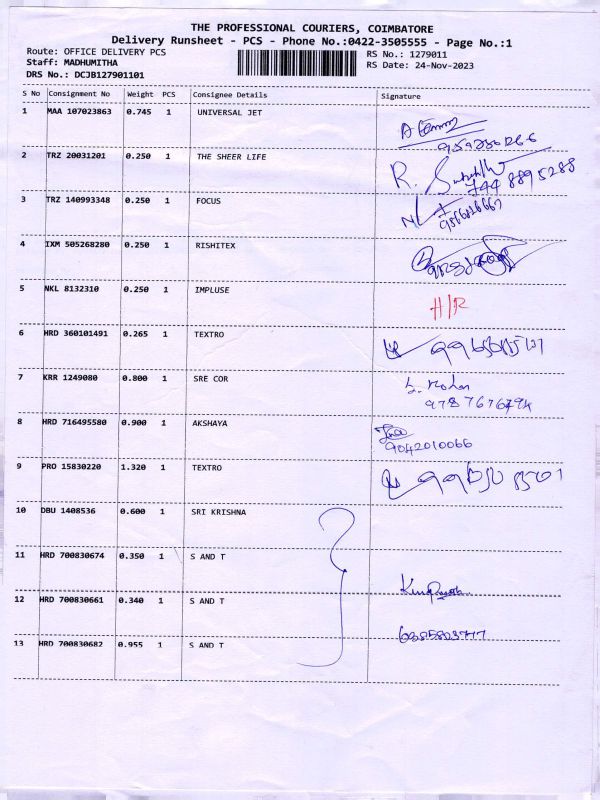 THE PROFESSIONAL COURIERS, COIMBATORE
Delivery Runsheet - PCS - Phone No.:0422-3505555 - Page No.:1
Route: OFFICE DELIVERY PCS RS No.: 1279011
Staff: MADHUMITHA RS Date: 24-Nov-2023
DRS No.: DCJB127901101
S No Consignment No Weight PCS Consignee Details Signature
1 MAA 107023863 0.745 1 UNIVERSAL JET
2 TRZ 20031201 0.250 1 THE SHEER LIFE
R. 744 8895288
3 TRZ 140993348 0.250 1 FOCUS
4 IXM 505268280 0.250 1 RISHITEX
5 NKL 8132310 0.250 1 IMPLUSE
H/R
6 HRD 360101491 0.265 1 TEXTRO
7 KRR 1249080 0.800 1 SRE COR
8 HRD 716495580 0.900 1 AKSHAYA
9042010066
9 PRO 15830220 1.320 1 TEXTRO
10 DBU 1408536 0.600 1 SRI KRISHNA
11 HRD 700830674 0.350 1 S AND T
12 HRD 700830661 0.340 1 S AND T
13 HRD 700830682 0.955 1 S AND T